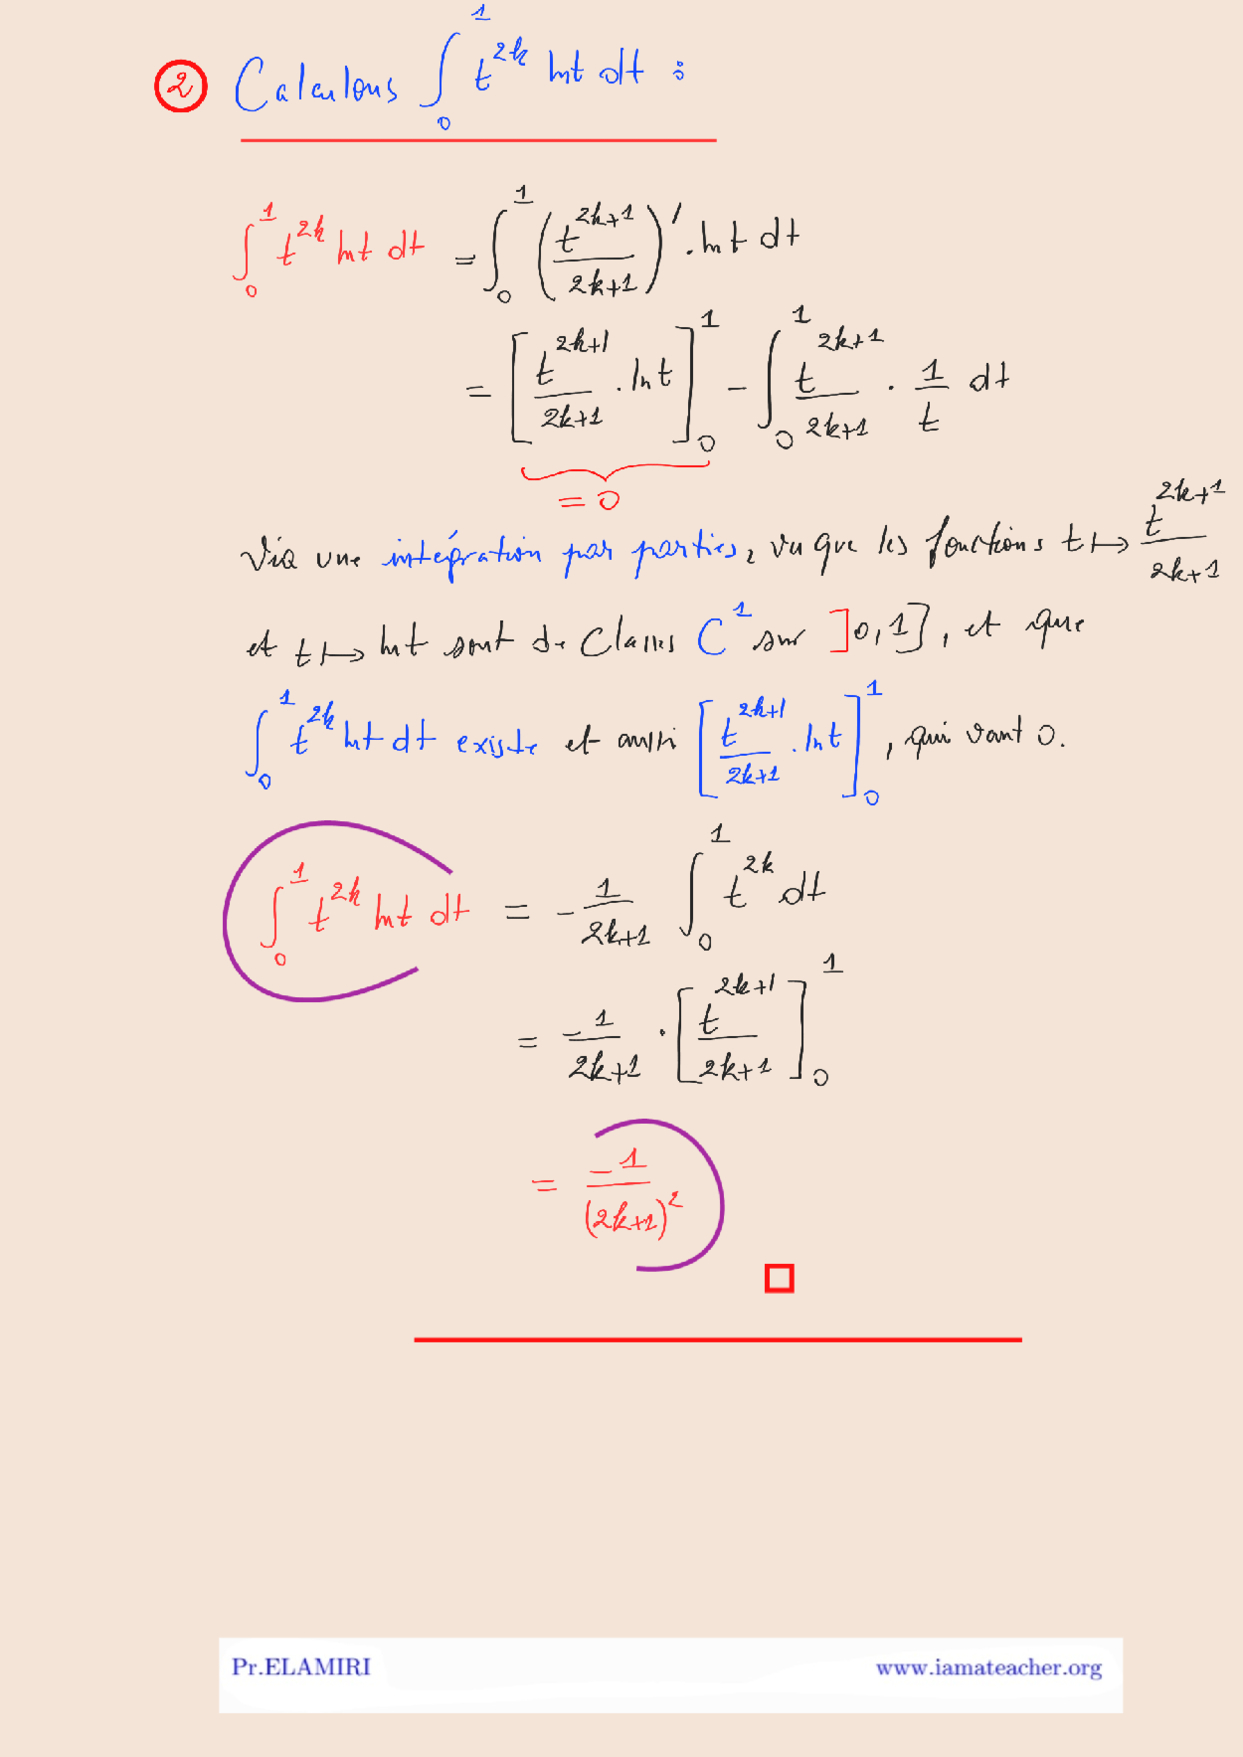 ② Calculons ∫₀¹ t^{2k} ln t dt :
∫₀¹ t^{2k} ln t dt = ∫₀¹ (t^{2k+1}/(2k+1))′ . ln t dt
= [t^{2k+1}/(2k+1) . ln t]₀¹ - ∫₀¹ t^{2k+1}/(2k+1) . 1/t dt
= 0
Via une intégration par parties, vu que les fonctions t ↦ t^{2k+1}/(2k+1)
et t ↦ ln t sont de classes C¹ sur ]0,1], et que
∫₀¹ t^{2k} ln t dt existe et aussi [t^{2k+1}/(2k+1) . ln t]₀¹, qui vaut 0.
∫₀¹ t^{2k} ln t dt = - 1/(2k+1) ∫₀¹ t^{2k} dt
= -1/(2k+1) . [t^{2k+1}/(2k+1)]₀¹
= -1/(2k+1)²
Pr.ELAMIRI www.iamateacher.org